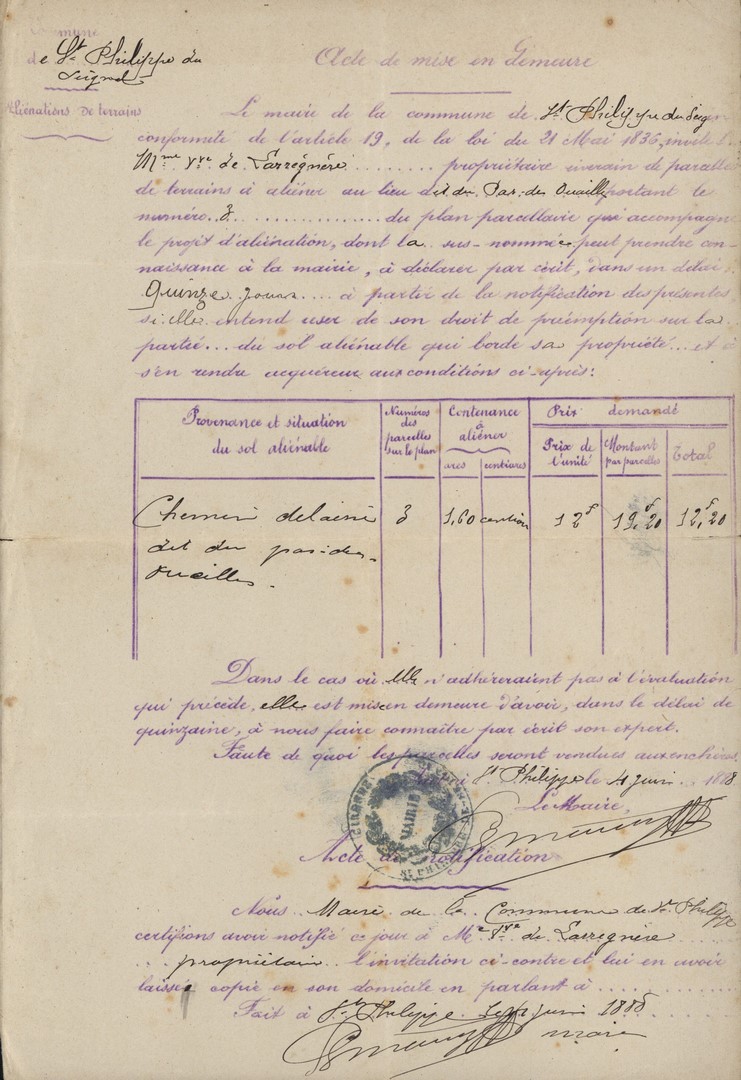 Commune
de St Philippe du
Seignal
Aliénations de terrains
Acte de mise en demeure
Le maire de la commune de St Philippe du Seig en
conformité de l'article 19, de la loi du 21 Mai 1836, invite
Mme Vve de Larregnère ........ propriétaire riverain de parcelle
de terrains à aliéner au lieu dit du Pas des Ouailles portant le
numéro 3 ................ du plan parcellaire qui accompagne
le projet d'aliénation, dont la sus-nommée peut prendre con-
naissance à la mairie, à déclarer par écrit, dans un délai
Quinze jours .... à partir de la notification des présentes
si elle entend user de son droit de préemption sur la
partie... du sol aliénable qui borde sa propriété... et à
s'en rendre acquéreur aux conditions ci-après:
Provenance et situation du sol aliénable
Numéros des parcelles sur le plan
Contenance à aliéner
ares
centiares
Prix demandé
Prix de l'unité
Montant par parcelles
Total
Chemin délaissé 3 1,60 12f 19f,20 12f,20
dit du pas-des-
oueilles.
Dans le cas où elle n'adhéreraient pas à l'évaluation
qui précède, elle est mise en demeure d'avoir, dans le délai de
quinzaine, à nous faire connaître par écrit son expert.
Faute de quoi les parcelles seront vendues aux enchères.
St Philippe le 4 juin 1888
Le Maire,
GIRONDE
MAIRIE
Acte de notification
Nous Maire de la Commune de St Philippe
certifions avoir notifié ce jour à Me Vve de Larregnère
.... propriétaire l'invitation ci-contre et lui en avoir
laissé copie en son domicile en parlant à ............
Fait à St Philippe le juin 1888
maire